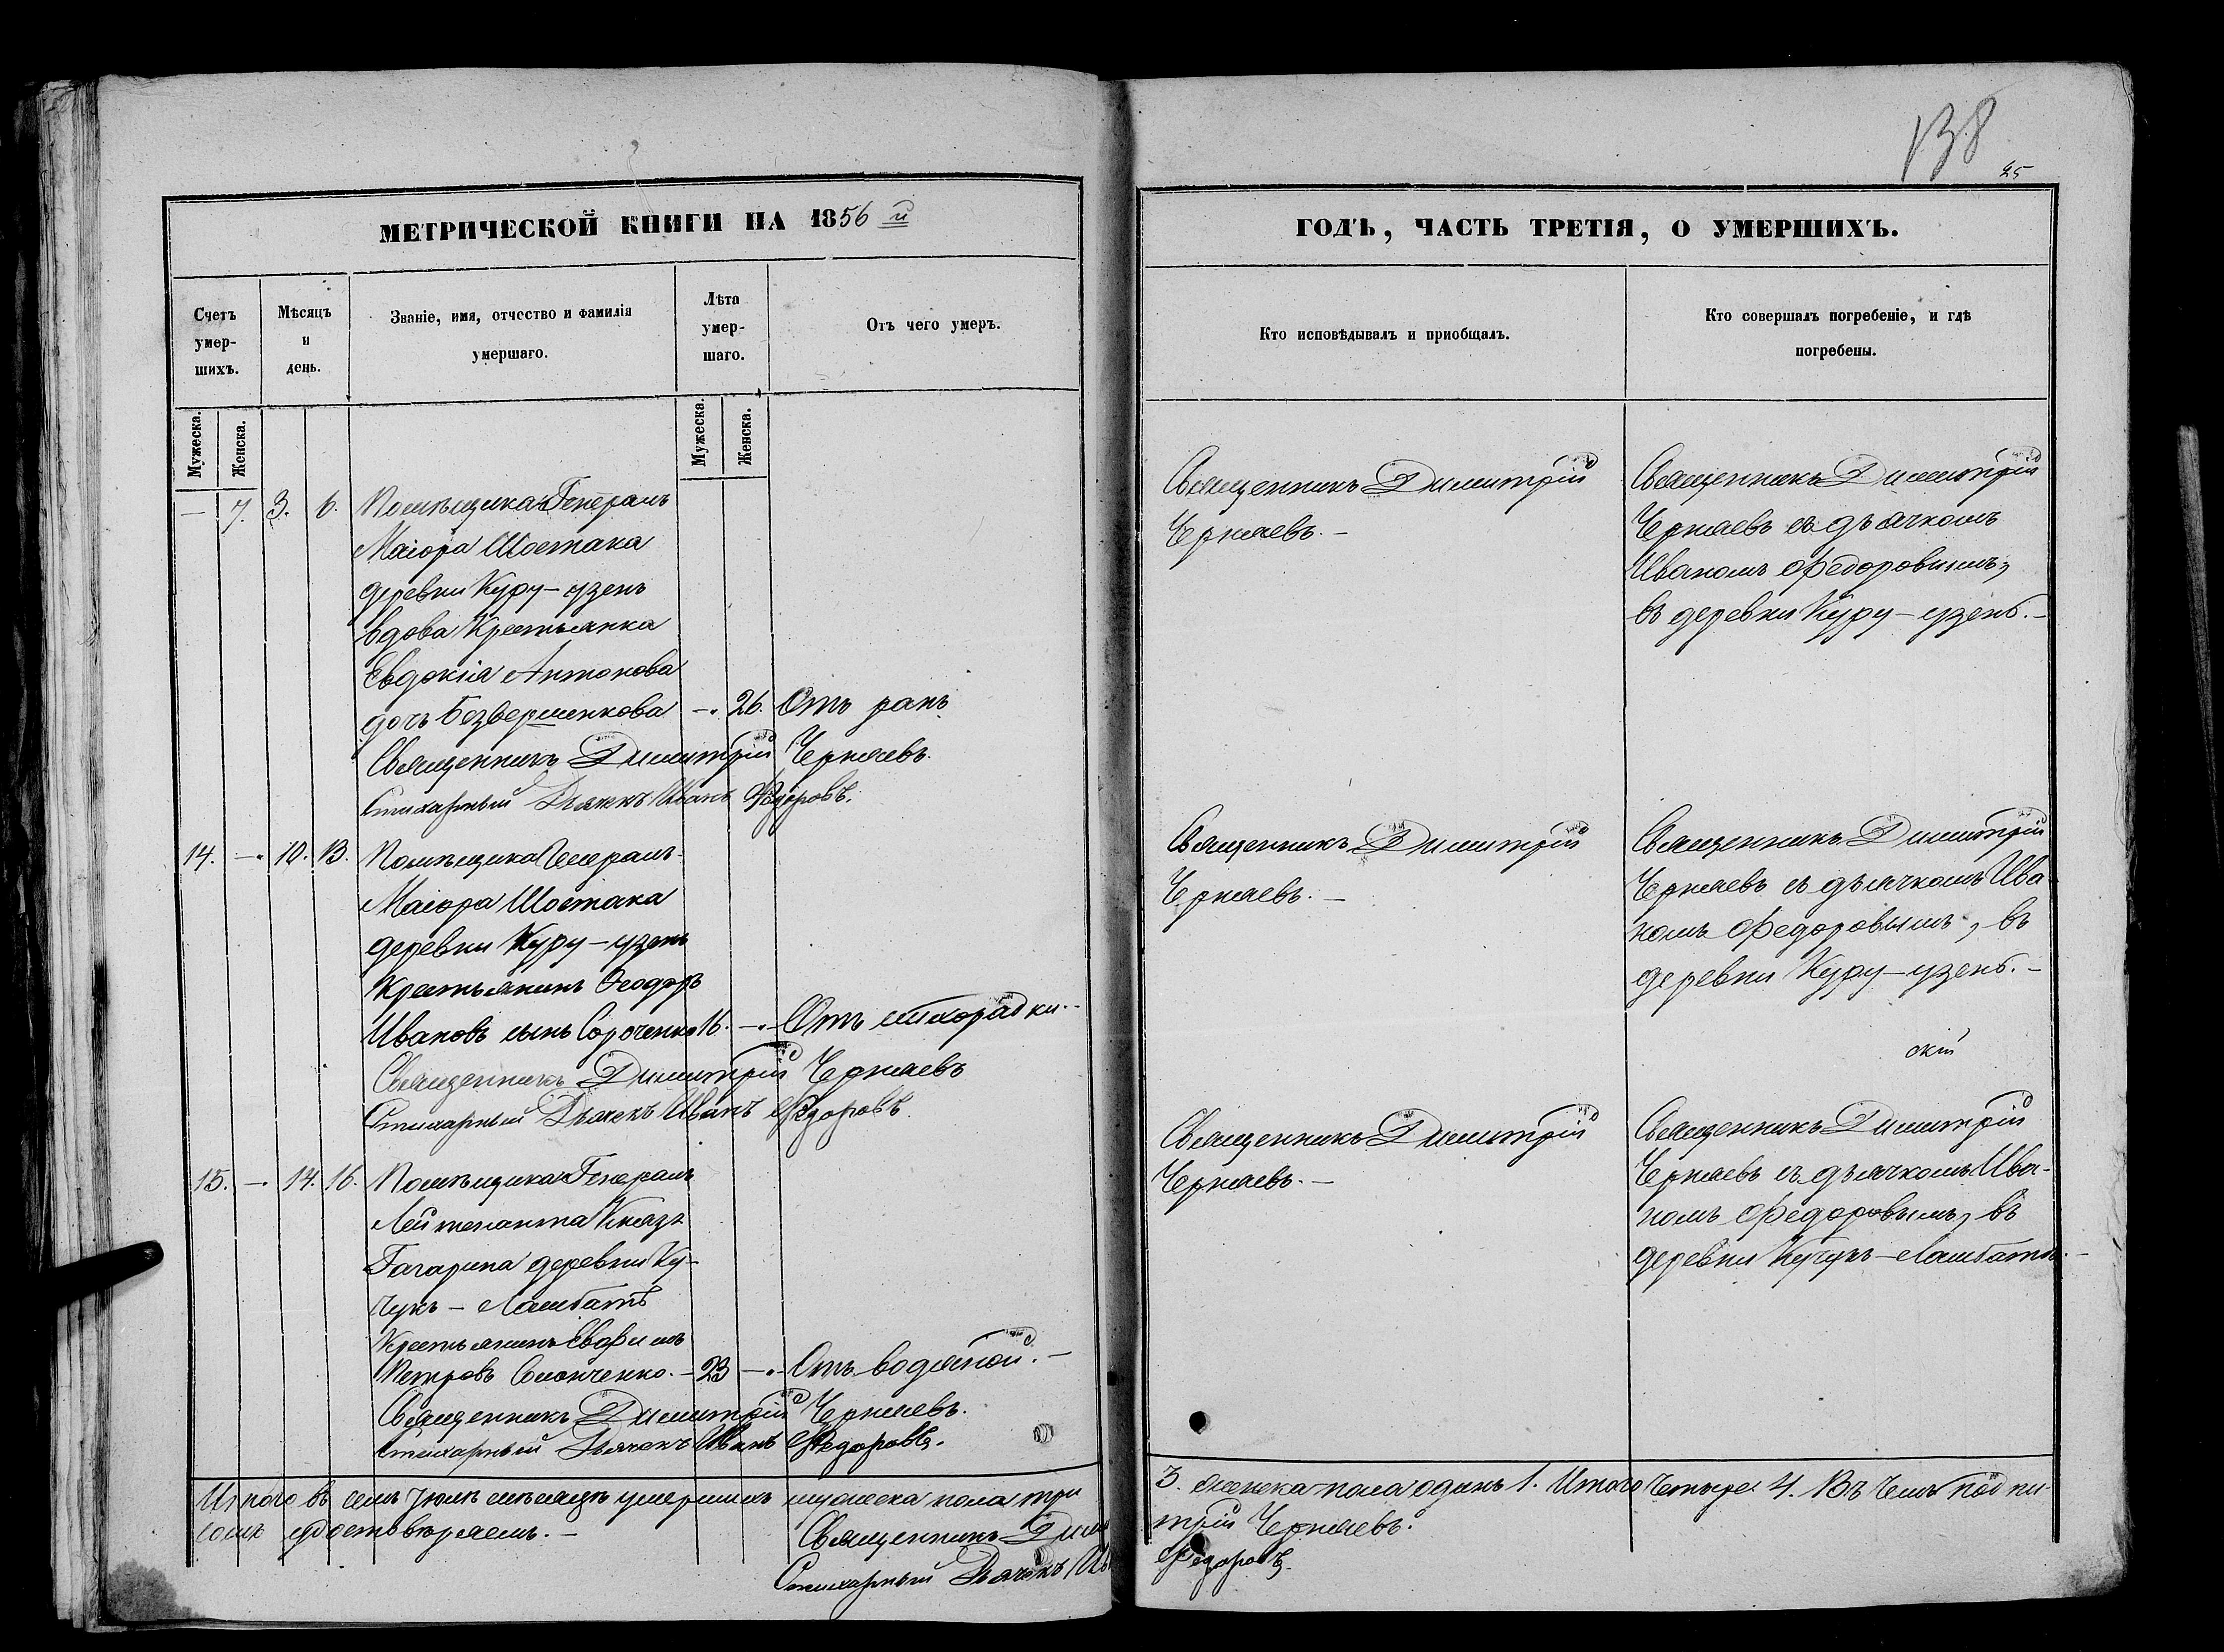 138
25
МЕТРИЧЕСКОЙ КНИГИ НА 1856 й
Счетъ умер-шихъ.
Мѣсяцъ и день.
Званіе, имя, отчество и фамилія умершаго.
Лѣта умер-шаго.
Отъ чего умеръ.
Мужеска.
Женска.
Мужеска.
Женска.
— 7. 3. 6. Помѣщика Генералъ
Маіора Шостака
деревни Куру-узень
вдова Крестьянка
Евдокія Антонова
дочь Безвершенкова —. 26. Отъ ранъ
Священникъ Димитрій Черняевъ.
Стихарный Дьячекъ Иванъ Федоровъ.
14. —. 10. 13. Помѣщика Генералъ-
Маіора Шостака
деревни Куру-узень
Крестьянинъ Ѳеодоръ
Ивановъ сынъ Сороченко 16. —. Отъ лихорадки.-
Священникъ Димитрій Черняевъ
Стихарный Дьячекъ Иванъ Федоровъ.
15. —. 14. 16. Помѣщика Генералъ
Лейтенанта Князя
Гагарина деревни Ку-
чукъ-Ламбатъ
Крестьянинъ Евфимъ
Петровъ —23 —. Отъ водяной.—
Священникъ Димитрій Черняевъ.
Стихарный Дьячекъ Иванъ Федоровъ.
Итого въ семъ Іюлѣ мѣсяцѣ умершихъ мужеска пола три
симъ удостовѣряемъ.—
Священникъ Дими
Стихарный Дьячекъ Ив
ГОДЪ, ЧАСТЬ ТРЕТІЯ, О УМЕРШИХЪ.
Кто исповѣдывалъ и приобщалъ.
Кто совершалъ погребеніе, и гдѣ погребены.
Священникъ Димитрій
Черняевъ.—
Священникъ Димитрій
Черняевъ съ дьячкомъ
Иваномъ Федоровымъ,
въ деревни Куру-узень.—
Священникъ Димитрій
Черняевъ.—
Священникъ Димитрій
Черняевъ съ дьячкомъ Ива
номъ Федоровымъ, въ
деревни Куру-узень.—
скій
Священникъ Димитрій
Черняевъ.—
Священникъ Димитрій
Черняевъ съ дьячкомъ Ива-
номъ Федоровымъ, въ
деревни Кучукъ-Ламбатъ.—
3. женска пола одинъ 1. Итого Четыре 4. Въ чемъ подпи-
трій Черняевъ.
Федоровъ.